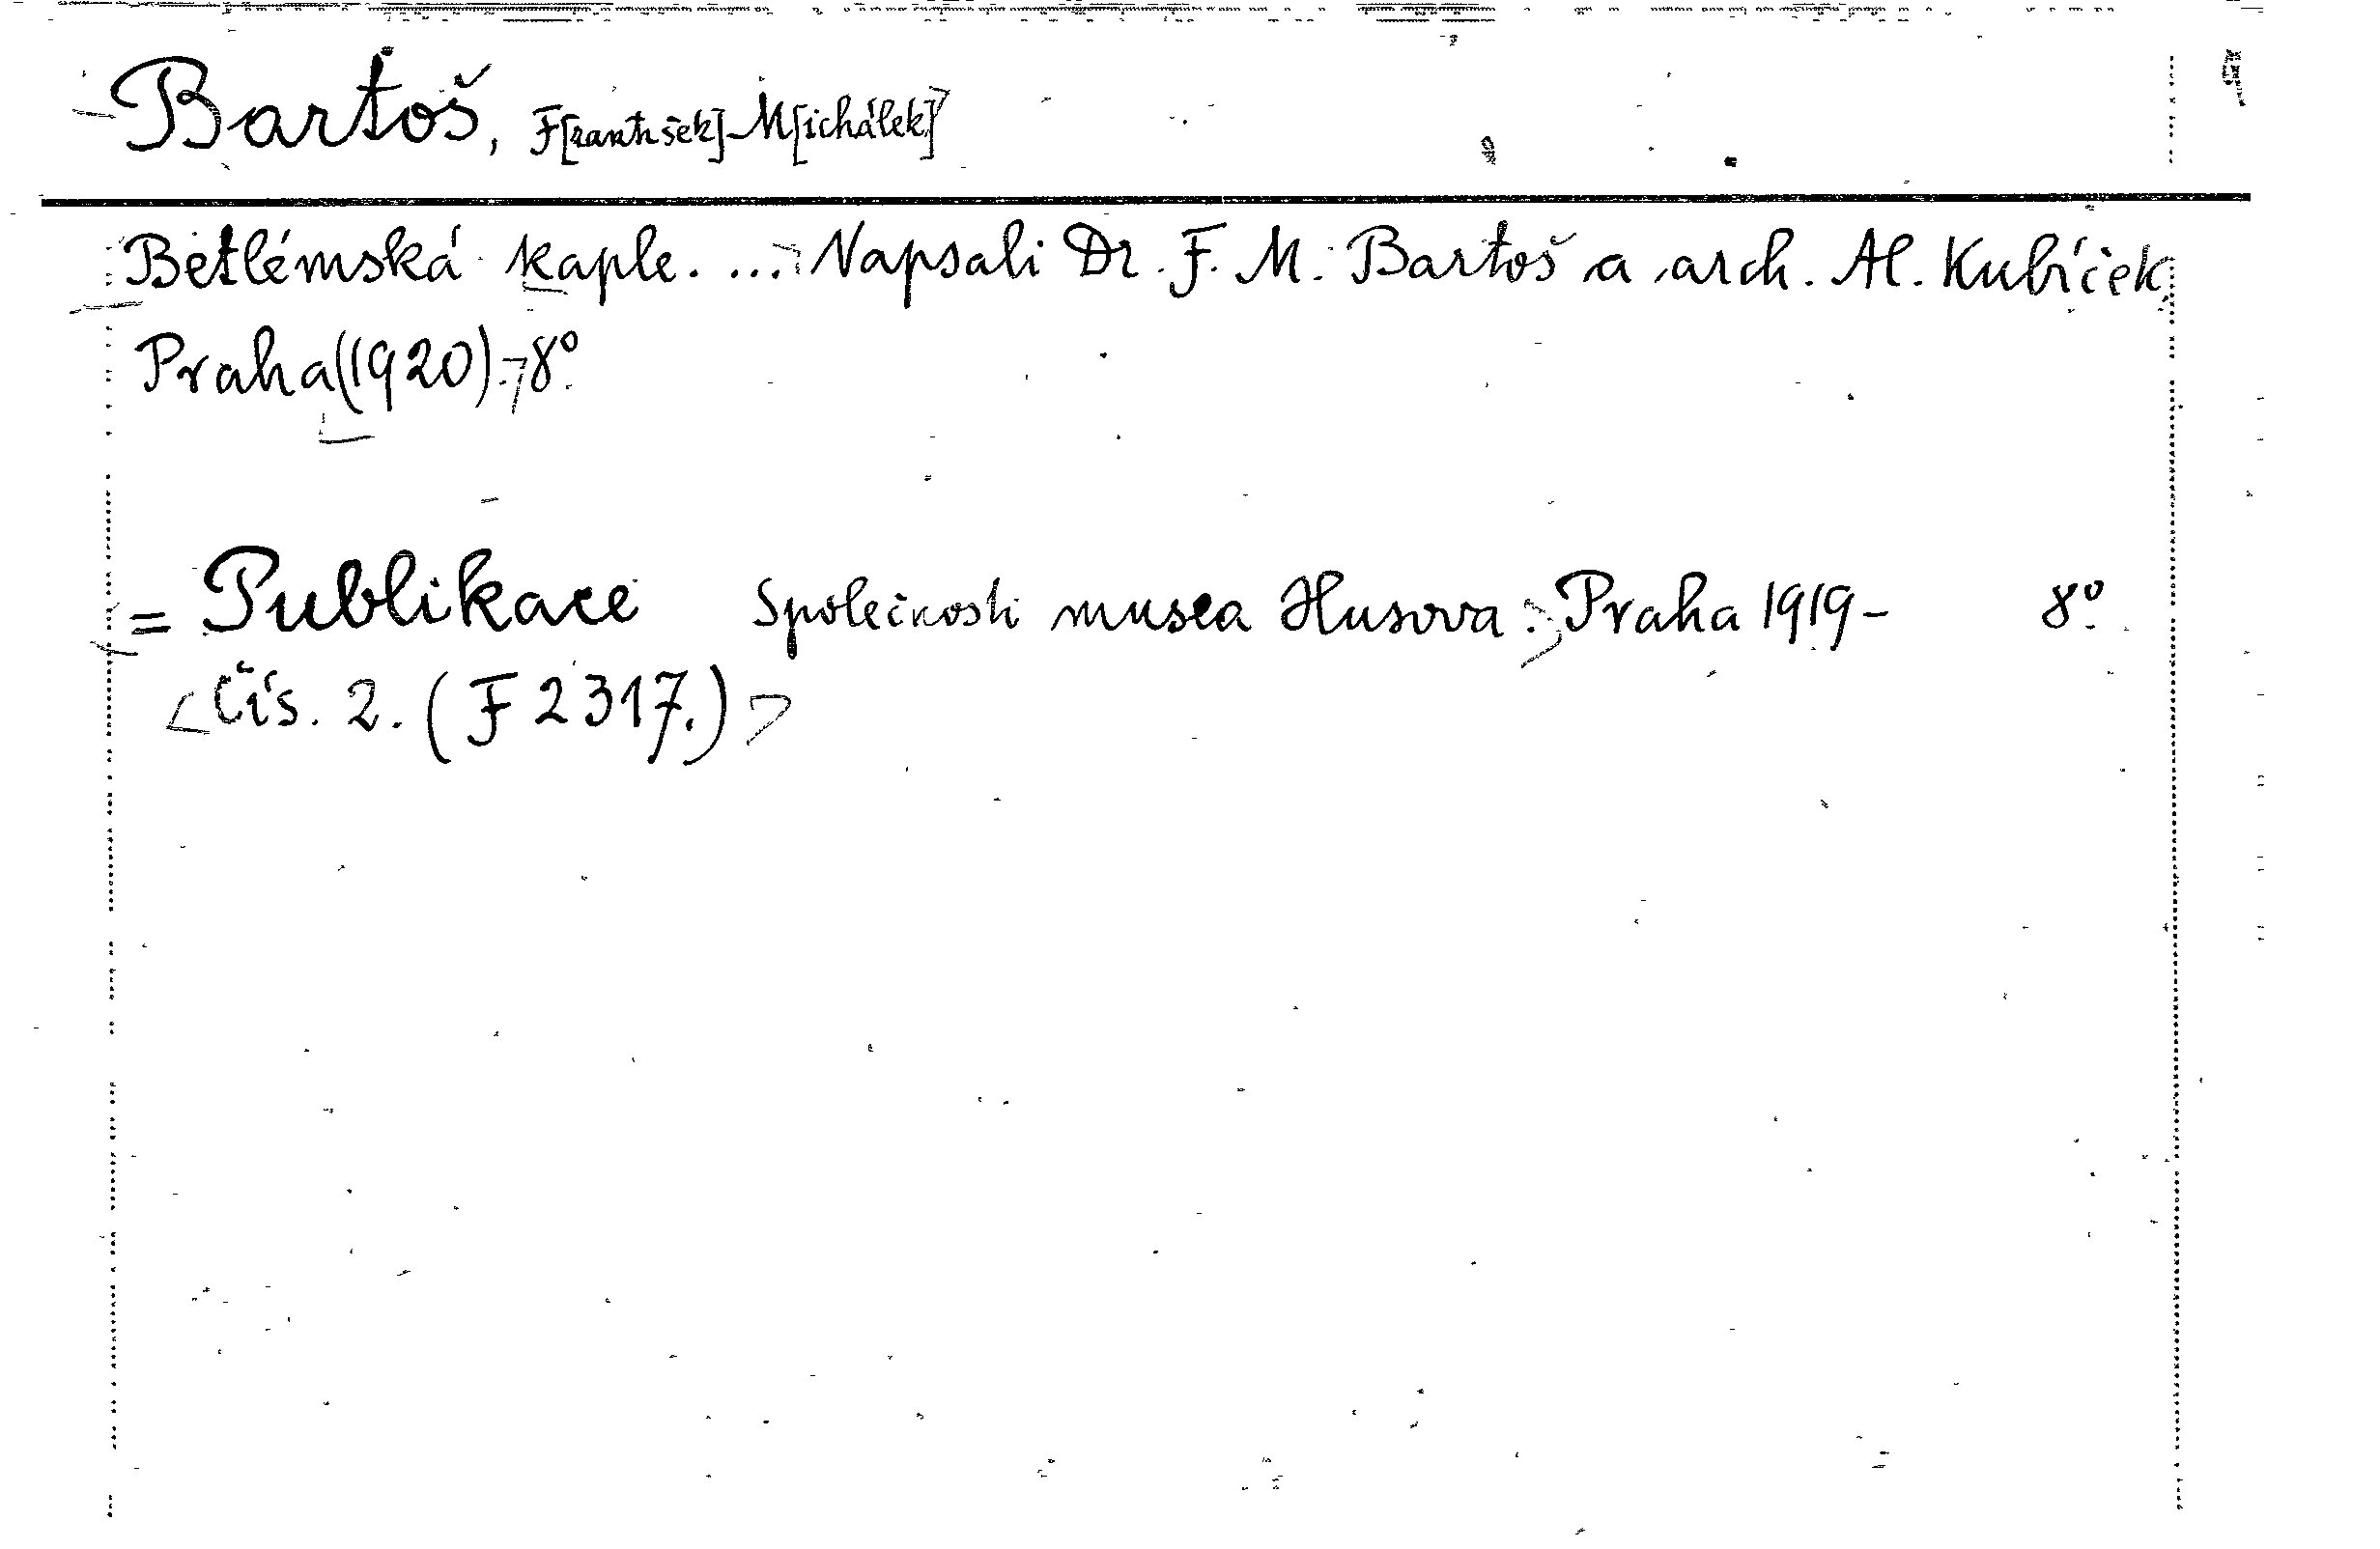 Bartoš, F[rantišek] M[ichálek]
Betlémská kaple. ... Napsali Dr. F. M. Bartoš a arch. Al. Kubíček
Praha (1920). 8°.
= Publikace Společnosti musea Husova. Praha 1919- 8°.
Čís. 2. (F 2317.)